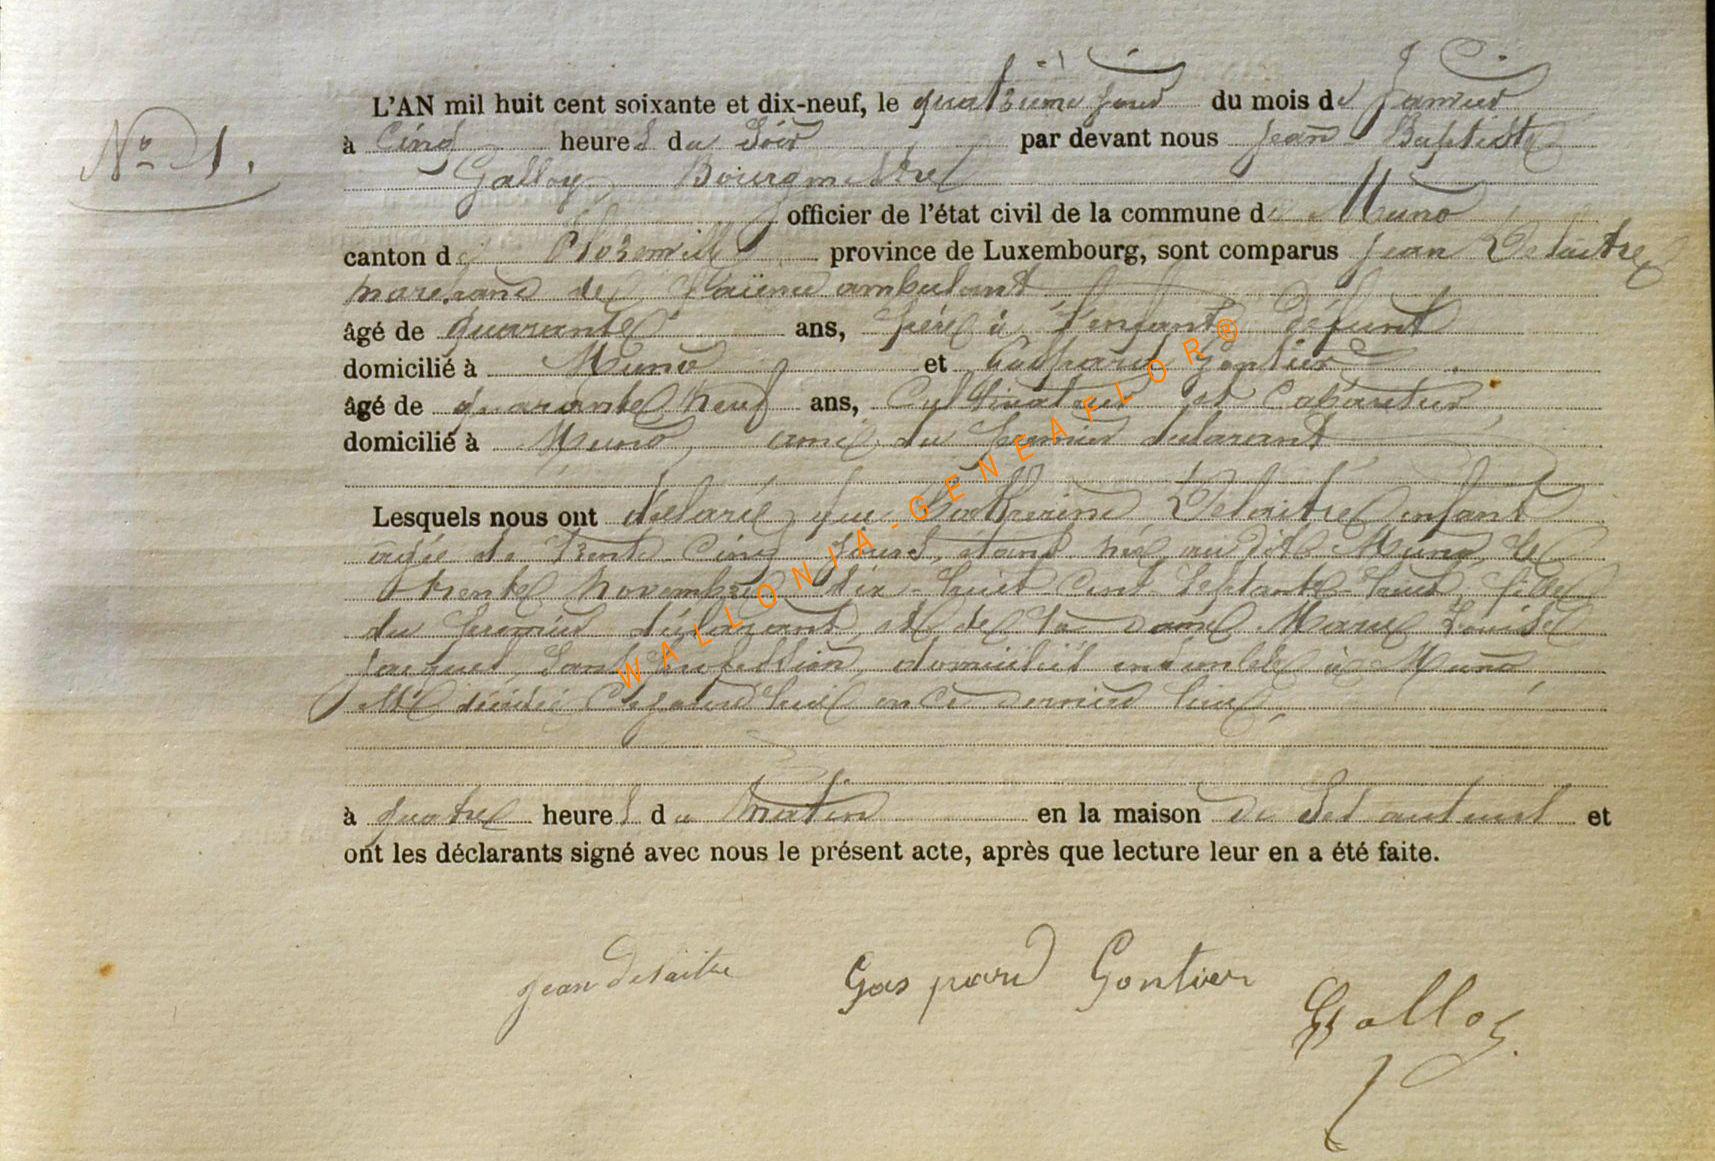 L'AN mil huit cent soixante et dix-neuf, le quatrième jour du mois de Janvier
N° 1.
à Cinq heures du Soir par devant nous Jean Baptiste
Galloy, Bourgmestre
officier de l'état civil de la commune de Muno
canton de Florenville province de Luxembourg, sont comparus Jean Delaitre
marchand de faïence ambulant
âgé de quarante ans, père à l'enfant défunt
domicilié à Muno et Gaspard Gontier
âgé de quarante neuf ans, Cultivateur et Cabaretier
domicilié à Muno, ami du premier déclarant
Lesquels nous ont déclaré que Catherine Delaitre enfant
agée de trente cinq jours, étant née au dit Muno, le
trente Novembre dix-huit-cent-septante-huit, fille
du premier déclarant, et de la dame Marie Louise
Jacquet, sans profession, domiciliés ensemble à Muno,
est décédée aujourd'hui en ce dernier lieu,
à quatre heures du matin en la maison de ses auteurs et
ont les déclarants signé avec nous le présent acte, après que lecture leur en a été faite.
jean delaitre Gaspard Gontier
Galloy
WALLONIA-GENEAFLOR®